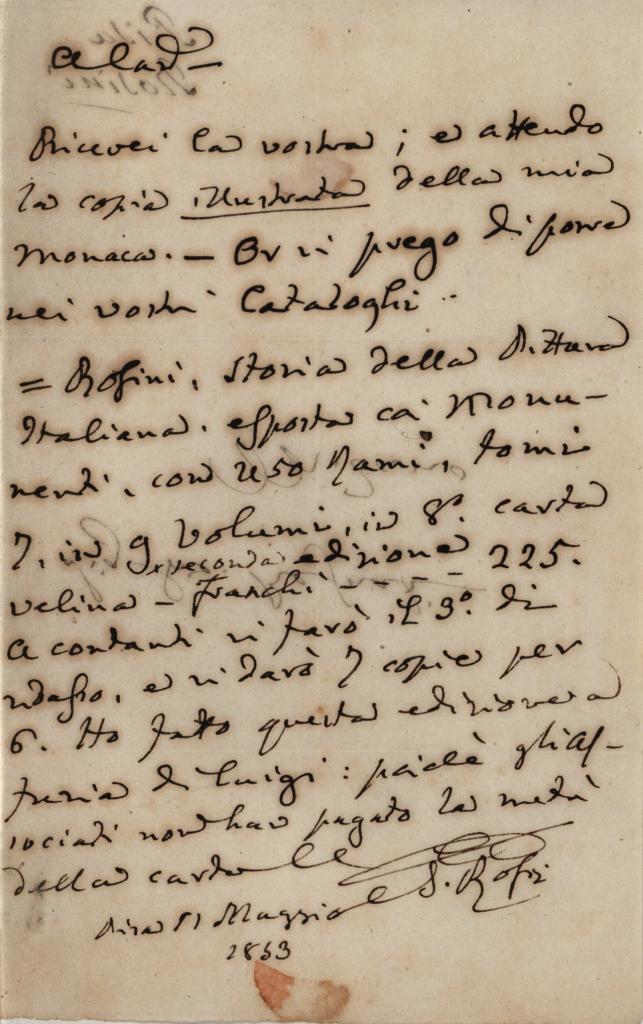 Ricevei la vostra; e attendo
la copia illustrata della mia
Monaca. — Or vi prego di porre
nei vostri Cataloghi
= Rosini, Storia della Pittura
Italiana. esposta coi Monu-
menti, con 250 Rami, tomi
7, in 9 Volumi, in 8º. carta
seconda edizione
velina - franchi - - - - 225.
A contanti vi farò il 30. di
ribasso, e vi darò 7 copie per
6. Ho fatto questa edizione a
furia di Luigi: poichè gli As-
sociati non han pagato la metà
della carta
G. Rosini
Pisa Maggio
1853